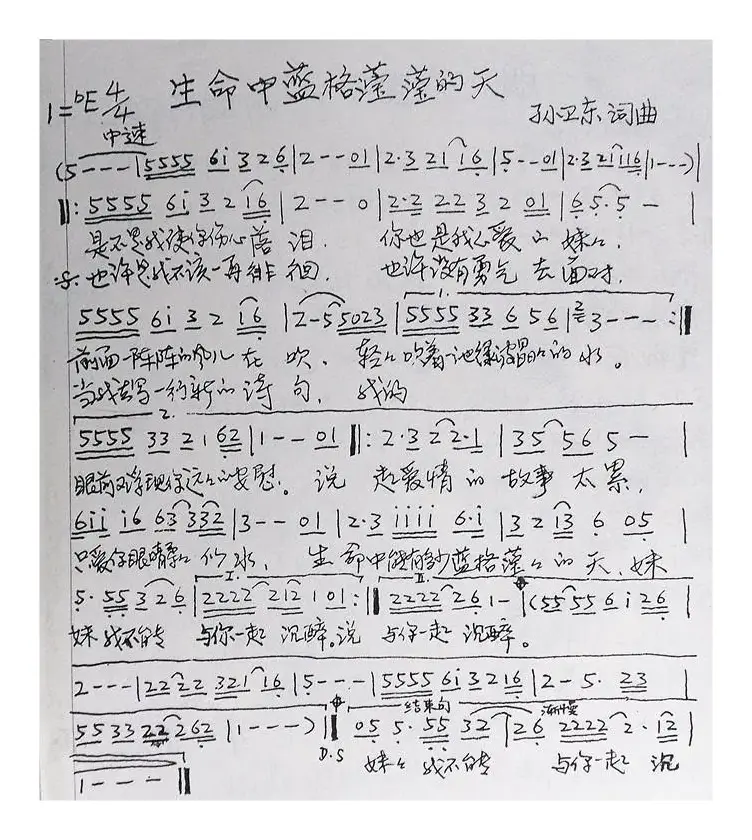 1=bE 4/4 生命中蓝格莹莹的天
中速 孙卫东词曲
(5---|5555 6i 3 2 6|2--01|2·3 21 16|5--01|2·3 21116|1---)|
‖: 5555 6i 3 2 16|2--0|2·2 22 3 2 01|6 5·5-|
是不是我使你伤心落泪. 你也是我心爱的妹妹.
也许是我不该一再徘徊. 也许没有勇气去面对.
1.
5555 6i 3 2 16|2-55023|5555 33 6 56|3---:‖
前面一阵阵的风儿在吹. 轻轻吹着
的水。
一行新的诗句, 我的
2.
5555 33 2 1 62|1--01‖: 2·3 22·1|35 56 5-|
眼前又浮现你远远的安慰。说起爱情的故事太累,
6ii i6 63 332|3--01|2·3 iiii 6·i|32 i3 6 05|
只爱你眼睛 似水, 生命中 蓝格莹莹的天,妹
I. II.
5·55 326|2222 212 101:‖2222 261-|(55 55 6 i 26|
妹我不能 与你一起沉醉。说 与你一起沉醉。
2---|2222 321 16|5---|5555 6i 3216|2-5·23|
结束句 渐慢
5533 22 262|1---)‖05 5·55 32|26 2222 2·12|
D.S 妹妹我不能 与你一起沉
1---‖